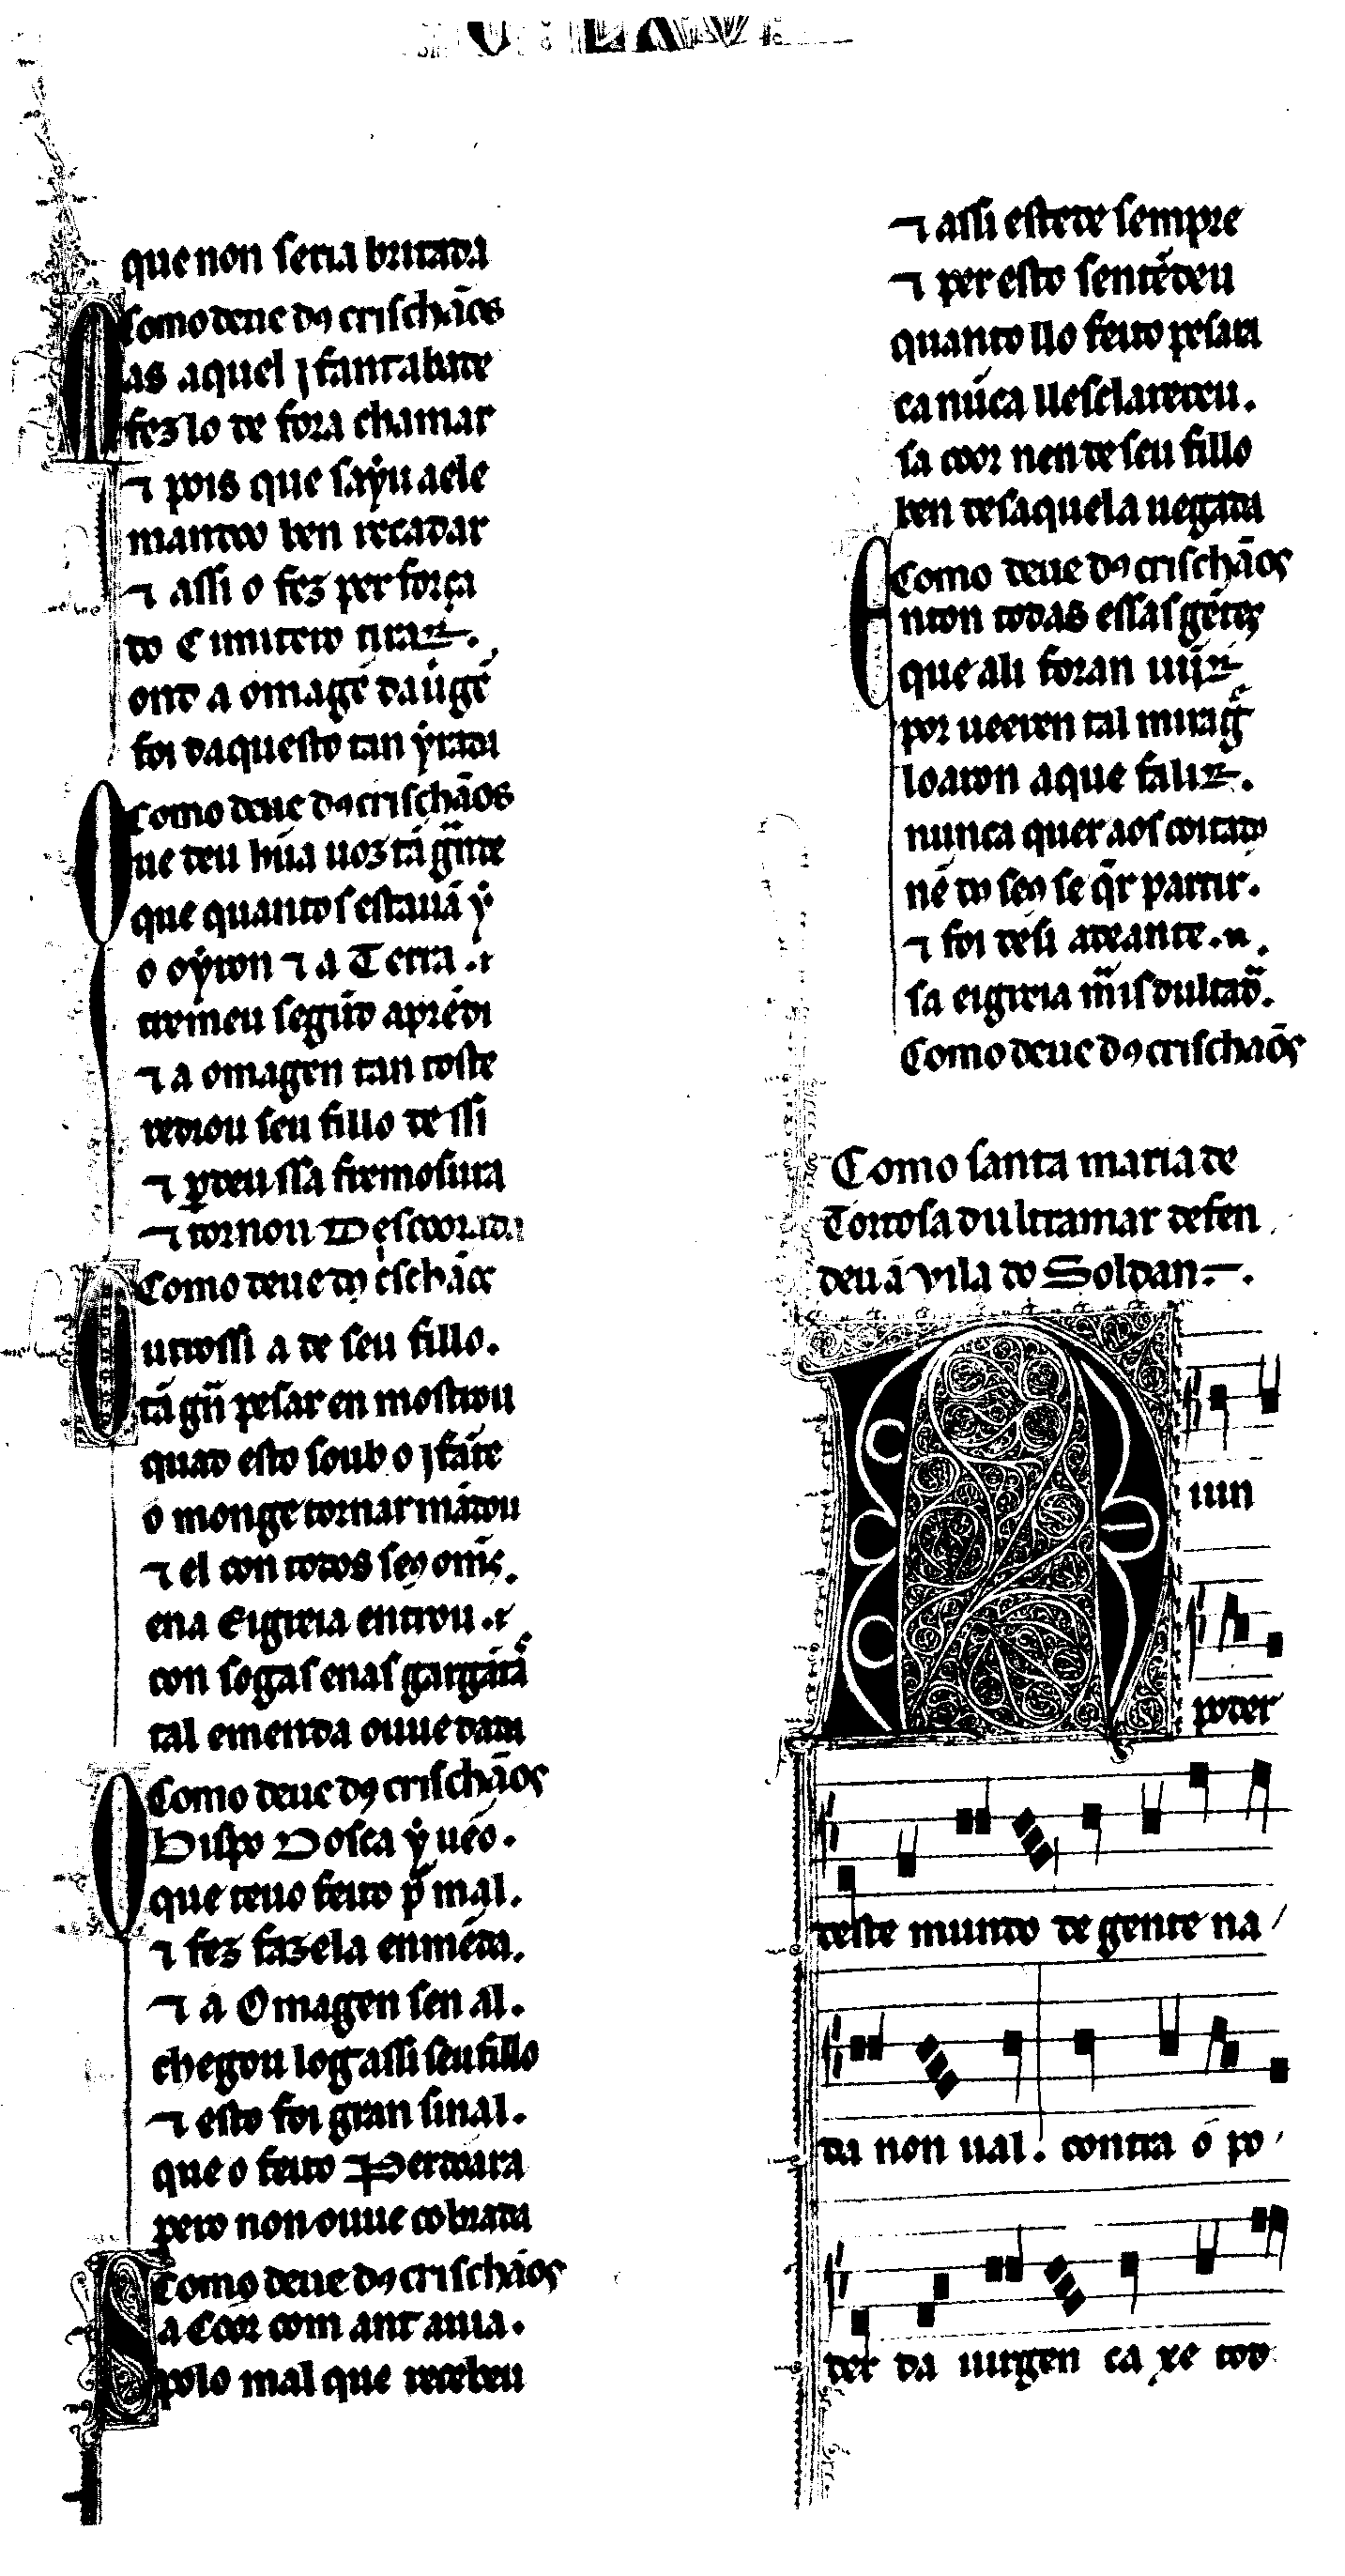 que non seria britada
Como deue dꝯ criſchãos
Mas aquel jfant abate
fez lo de fora chamar
⁊ pois que sayu a ele
mandoo ben recadar
⁊ aſſi o fez per força
do Cimiterio
ond a omagẽ da uirgẽ
foi daquesto tan yrada
Como deue dꝯ criſchãos
Que deu hũa uoz tã
que quantoſ estauã y
o oyron ⁊ a Terra
tremeu segũd aprẽdi
⁊ a omagen tan toste
redrou ſeu fillo de ſſi
⁊ ꝑdeu ſſa fremoſura
⁊ tornou Descoorada
Como deue dꝯ cſchãos
Outroſſi a de ſeu fillo.
tã pesar en mostrou
quãd esto ſoub o jfãte
o monge tornar mãdou
⁊ el con todos ſeꝯ
ena Eigreia entrou.
con ſogaſ enaſ gargãtas
tal emenda ouue dada
Como deue dꝯ criſchãos
O Biſpo Dosca y uẽo.
que teuo feito mal.
⁊ fez fazela enmẽda.
⁊ a Omagen sen al.
chegou log aſſi ſeu fillo
⁊ esto foi gran ſinal.
que o feito Perdoara
pero non ouue cobrada
Como deue dꝯ criſchãos
Sa Coor com ant auia.
polo mal que recebeu
⁊ aſſi estede ſempre
⁊ per esto ſentẽdeu
quanto llo feito peſara
ca nũca lleſclareceu.
ſa coor nen de ſeu fillo
ben deſaquela uegada
Como deue dꝯ criſchãos
Enton todas eſſaſ gẽtes
que ali foran
por ueeren tal mirag̃
loaron a que falir.
nunca quer aoſ coitados
nẽ do ſeꝯ se q̃r partir.
⁊ foi deſi adeante.
ſa eigreia dultad̃.
Como deue dꝯ criſchaõs
Como ſanta maria de
Tortoſa dultramar defen
deu ã vila do Soldan.
Niun
poder
deste mundo de gente na
da non ual. contra ó po
der da uirgen ca xe tod